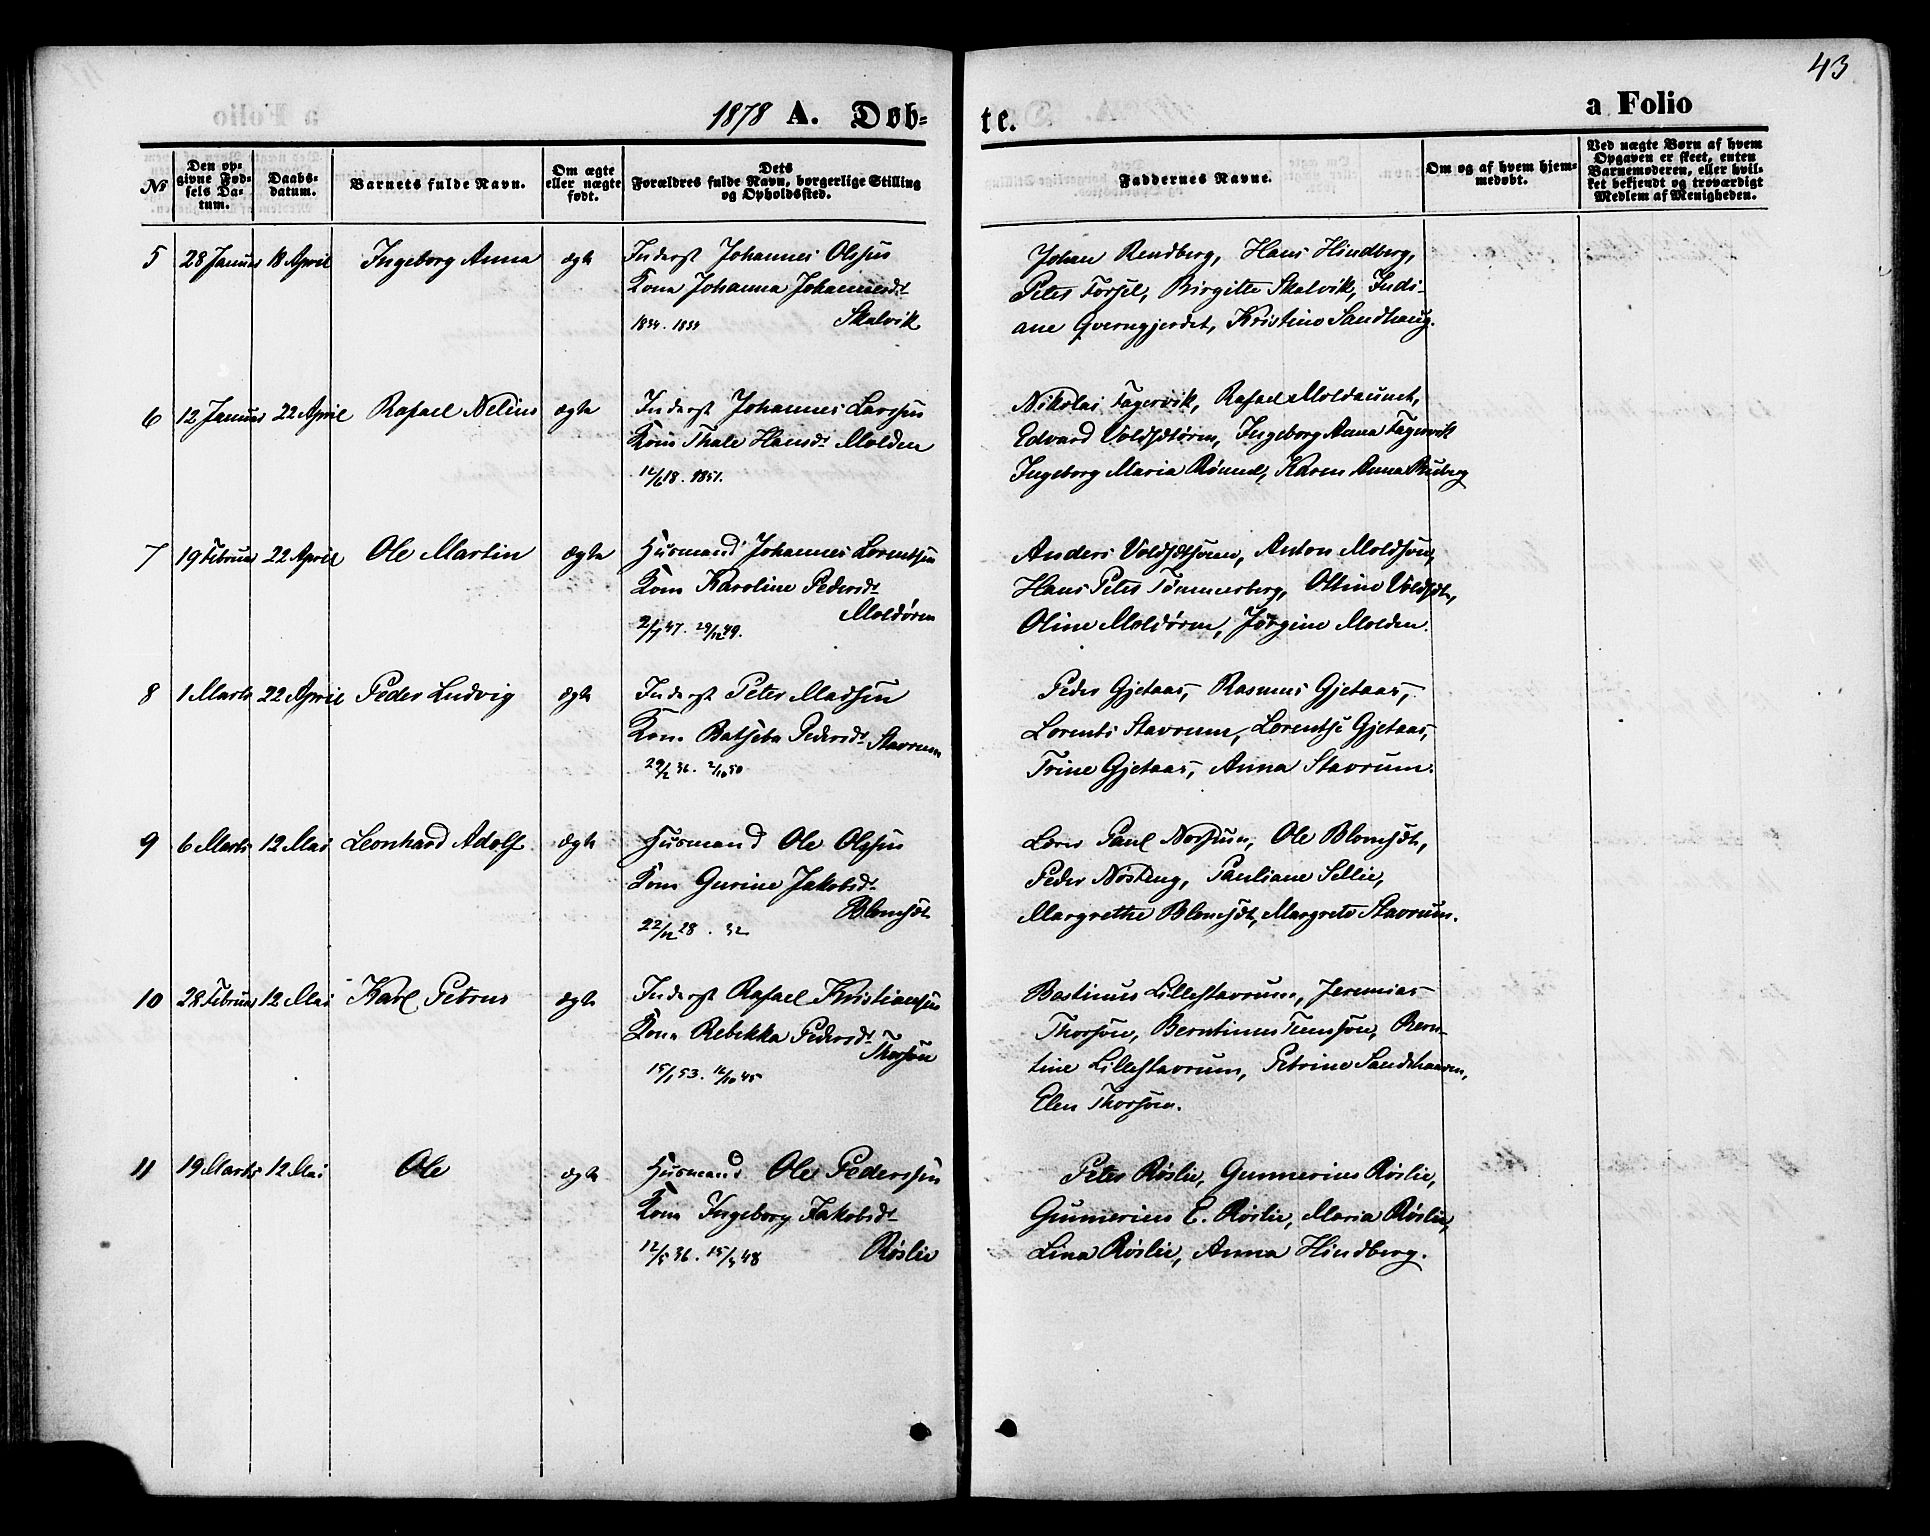 43
1878 A. Døb-
te.
a Folio
No
Den op-
givne Fød-
sels Da-
tum.
Daabs-
datum.
Barnets fulde Navn.
Om ægte
eller uægte
født.
Dets
Forældres fulde Navn, borgerlige Stilling
og Opholdssted.
Faddernes Navne.
Om og af hvem hjem-
medøbt.
Ved uægte Børn af hvem
Opgaven er skeet, enten
Barnemoderen, eller hvil-
ket bekjendt og troværdigt
Medlem af Menigheden.
5 28 Januar 18 April Ingeborg Anna ægte Inderst Johannes Olssen
Kone Johanna Johannesdt
1834. 1839 Skalvik
Johan Rendberg, Hans Hindberg,
Peter Forsel, Birgitte Skalvik, Indi-
ane Qverngjerdet, Kristine Sandhaug.
6 12 Januar 22 April Rafael Nelius ægte Inderst Johannes Larssen
Kone Thale Hansdt Molden
12/6 18. 1851.
Nikolai Fagervik, Rafael Moldaunet,
Edvard Voldsdtøren, Ingeborg Anna Fagervik
Ingeborg Maria Rømul, Karen Anna
7 19 Februar 22 April Ole Martin ægte Husmand Johannes Lorentsen
Kone Karoline Pedersdt
Moldøren
2/7 47. 29/12 49.
Anders Voldsdtsøren, Anton Moldsøen,
Hans Peter Tømmerberg, Oline Voldsdt,
Oline Moldøren, Jørgine Molden.
8 1 Marts 22 April Peder Ludvig ægte Inderst Peter Madssen
Kone Batseba Pedersdt Stavrum
29/2 36. 2/10 50
Peder Gjetaas, Rasmus Gjetaas,
Lorents Stavrum, Lorentse Gjetaas,
Trine Gjetaas, Anna Stavrum.
9 6 Marts 12 Mai Leonhard Adolf ægte Husmand Ole Olssen
Kone Gurine Jakobsdt
Blomsdt
22/12 28. 32
Lars Paul Nossum, Ole Blomsdt,
Peder Nøsteng, Pauliane Sellie,
Margrethe Blomsdt, Margrete Stavrum.
10 28 Februar 12 Mai Karl Petrus ægte Inderst Rafael Kristianssen
Kone Rebekka Pedersdt
Thorsøen
15/1 53. 12/10 45
Bastinus Lillestavrum, Jeremias
Thorsøen, Berntinus Temsøen, Bern-
tine Lillestavrum, Petrine Sandshaaven,
Elen Thorsøen.
11 19 Marts 12 Mai Ole ægte Husmand Ole Pederssen
Kone Ingeborg Jakobsdt
12/5 36. 15/3 48 Røslie
Peter Røslie, Gunnerius Røslie,
Gunnerius E. Røslie, Maria Røslie,
Lina Røslie, Anna Hindberg.